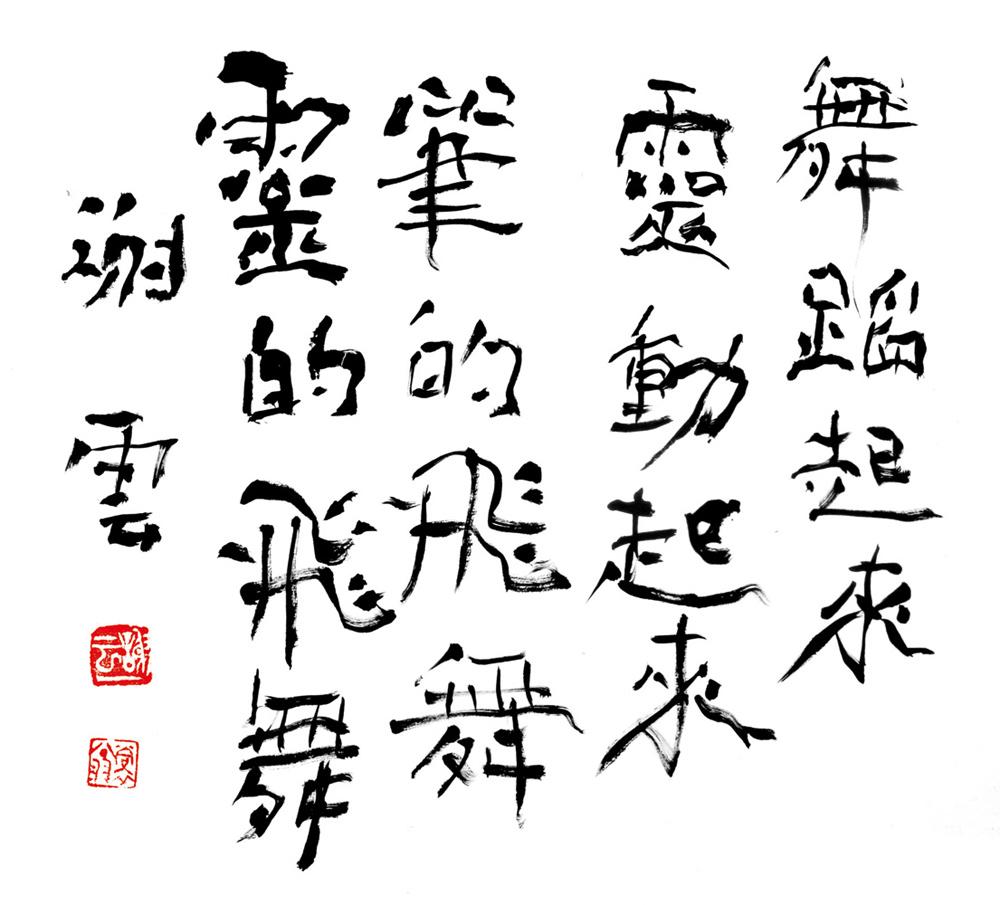 舞蹈起來
靈動起來
筆的飛舞
靈的飛舞
謝雲